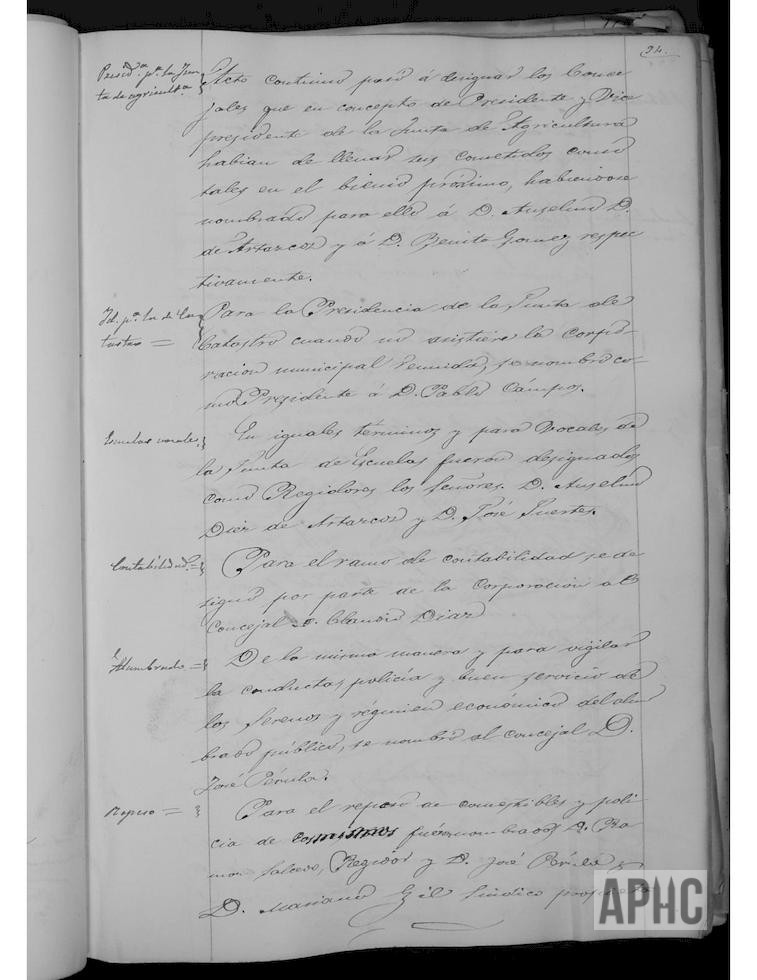 24.
Presid.ª p.ª la Jun
ta de agricult.ª
Acto continuo pasó á designar los Conce
jales que en concepto de Presidente y Vice
presidente de la Junta de Agricultura
habian de llenar sus cometidos
tales en el bienio próximo, habiendose
nombrado para ello á D. Anselmo D.
de Artarcos y á D. Benito Gomez respec
tivamente.
Id. p.ª la de Ca
tastro =
Para la Presidencia de la Junta de
Catastro cuando no asistiere la Corpo-
racion municipal reunida, se nombró co-
mo Presidente á D. Pablo Cámpos.
Escuelas
En iguales términos y para Vocales de
la Junta de Escuelas fueron designados
como Regidores los Señores. D. Anselmo
Diez de Artarcos y D. José Fuertes.
Contabilidad =
Para el ramo de contabilidad se de
signó por parte de la Corporación al
Concejal D. Claudio Diaz
Alumbrado =
De la misma manera y para vigilar
la conducta, policía y buen servicio de
los Serenos y régimen económico del alum
brado público, se nombró al concejal D.
José Pérula.
Repeso =
Para el repeso de comestibles y poli
cia de los mismos fueron nombrados D. Ra
mon Salcedo, Regidor y D. José Pérula y
D. Mariano Gil Síndico
APHC